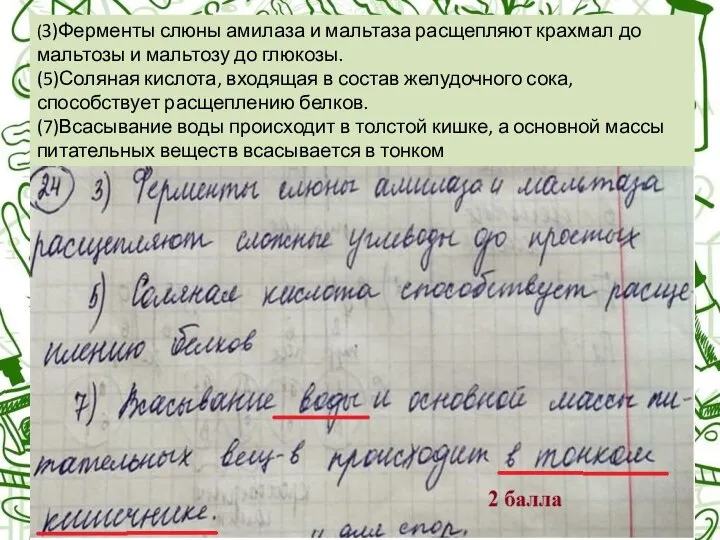 (3)Ферменты слюны амилаза и мальтаза расщепляют крахмал до
мальтозы и мальтозу до глюкозы.
(5)Соляная кислота, входящая в состав желудочного сока,
способствует расщеплению белков.
(7)Всасывание воды происходит в толстой кишке, а основной массы
питательных веществ всасывается в тонком
24 3) Ферменты слюны амилаза и мальтаза
расщепляют сложные углеводы до простых
5) Соляная кислота способствует расще
плению белков
7) Всасывание воды и основной массы пи-
тательных вещ-в происходит в тонком
2 балла
кишечнике.
и для спор.